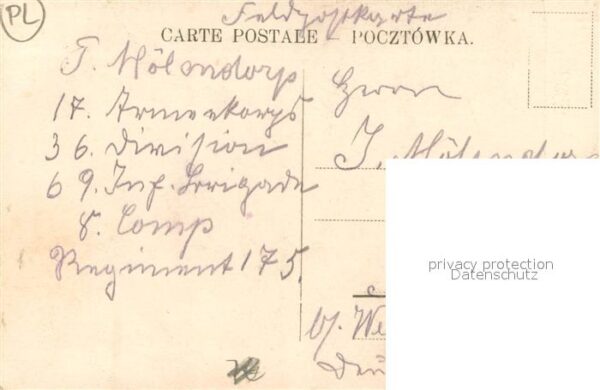 PL
Feldpostkarte
CARTE POSTALE – POCZTÓWKA.
J. Mölendorp
17. Armeekorps
36. Division
69. Inf. Brigade
8. Comp
Regiment 175.
Herrn
J. Mölendorp
b/. We
Deu
privacy protection
Datenschutz